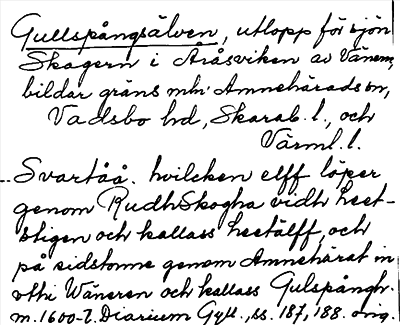 Gullspångsälven, utlopp för sjön
Skagern i Åråsviken av Vänern,
bildar gräns mln Amnehärads sn,
Vadsbo hd, Skarab. l., och
Värml. l.
Svartåå. hvilcken elff löper
genom RudhSkogha vidh heet-
stigen och kallass heetälff, och
på sidstonne genom Amnehärat in
vthi Wäneren och kallass Gulspångh.
m. 1600-t. Diarium Gyll., ss. 187, 188. orig.